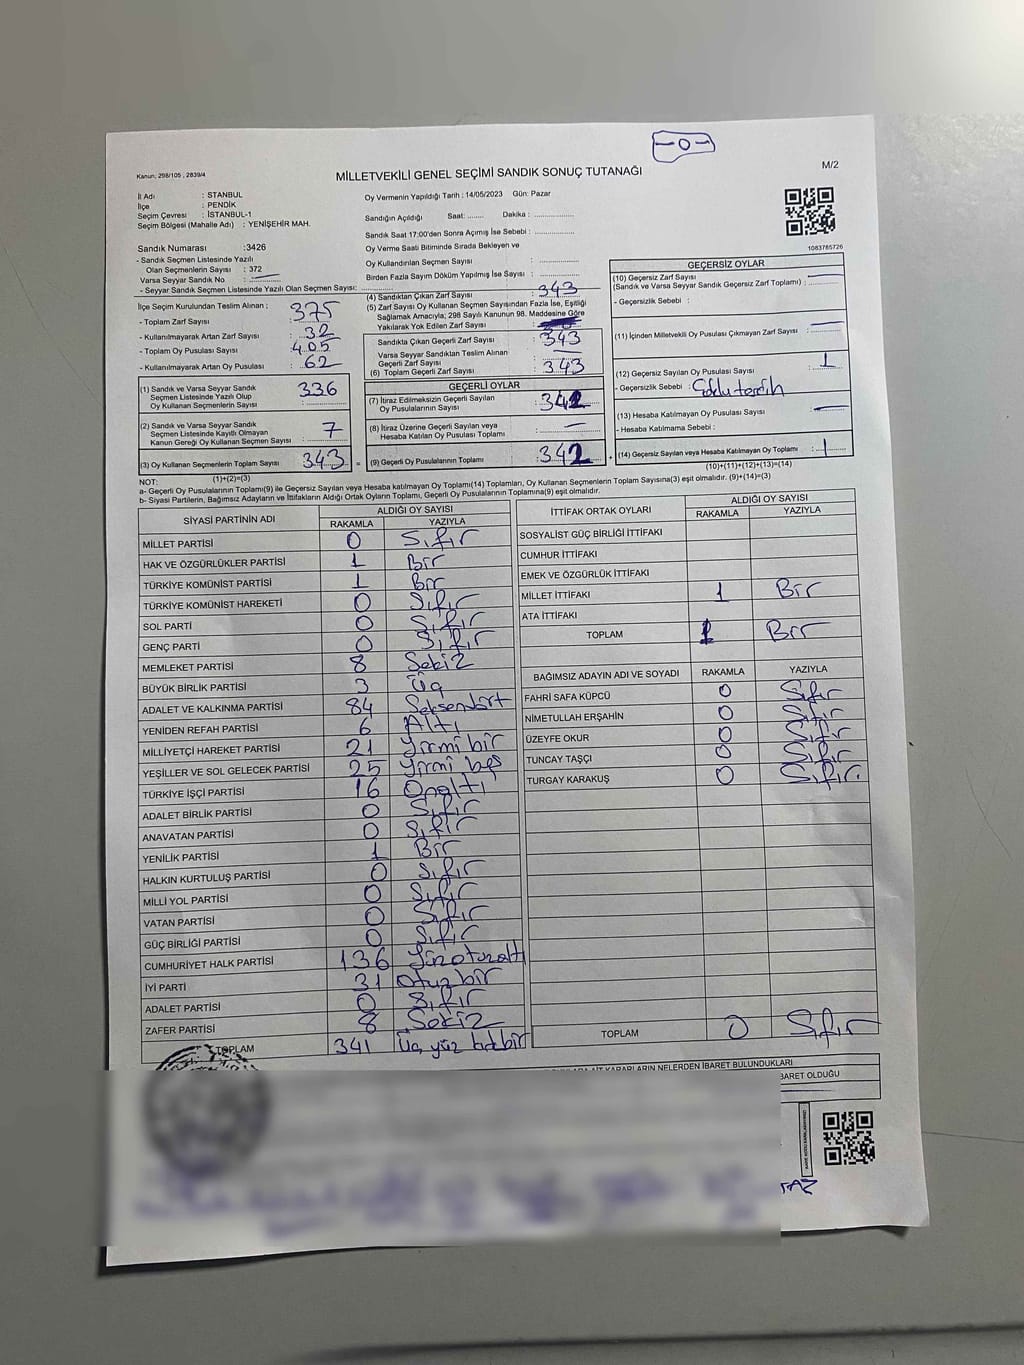 -0-
Kanun; 298/105 , 2839/4
MİLLETVEKİLİ GENEL SEÇİMİ SANDIK SONUÇ TUTANAĞI
M/2
İl Adı : STANBUL
İlçe : PENDİK
Seçim Çevresi : İSTANBUL-1
Seçim Bölgesi (Mahalle Adı) : YENİŞEHİR MAH.
Sandık Numarası :3426
- Sandık Seçmen Listesinde Yazılı
Olan Seçmenlerin Sayısı : 372
Varsa Seyyar Sandık No :
- Seyyar Sandık Seçmen Listesinde Yazılı Olan Seçmen Sayısı:
Oy Vermenin Yapıldığı Tarih : 14/05/2023 Gün: Pazar
Sandığın Açıldığı Saat: ....... Dakika : ..............
Sandık Saat 17:00'den Sonra Açımış İse Sebebi : ..............
Oy Verme Saati Bitiminde Sırada Bekleyen ve
Oy Kullandırılan Seçmen Sayısı :
Birden Fazla Sayım Döküm Yapılmış İse Sayısı :
1083785726
İlçe Seçim Kurulundan Teslim Alınan :
- Toplam Zarf Sayısı : 375
- Kullanılmayarak Artan Zarf Sayısı : 32
- Toplam Oy Pusulası Sayısı : 405
- Kullanılmayarak Artan Oy Pusulası : 62
(1) Sandık ve Varsa Seyyar Sandık
Seçmen Listesinde Yazılı Olup
Oy Kullanan Seçmenlerin Sayısı : 336
(2) Sandık ve Varsa Seyyar Sandık
Seçmen Listesinde Kayıtlı Olmayan
Kanun Gereği Oy Kullanan Seçmen Sayısı : 7
(3) Oy Kullanan Seçmenlerin Toplam Sayısı 343 =
(4) Sandıktan Çıkan Zarf Sayısı : 343
(5) Zarf Sayısı Oy Kullanan Seçmen Sayısından Fazla İse, Eşitliği
Sağlamak Amacıyla; 298 Sayılı Kanunun 98. Maddesine Göre
Yakılarak Yok Edilen Zarf Sayısı :
Sandıkta Çıkan Geçerli Zarf Sayısı : 343
Varsa Seyyar Sandıktan Teslim Alınan
Geçerli Zarf Sayısı
(6) Toplam Geçerli Zarf Sayısı : 343
GEÇERLİ OYLAR
(7) İtiraz Edilmeksizin Geçerli Sayılan
Oy Pusulalarının Sayısı : 342
(8) İtiraz Üzerine Geçerli Sayılan veya
Hesaba Katılan Oy Pusulası Toplamı :
(9) Geçerli Oy Pusulalarının Toplamı : 342 +
GEÇERSİZ OYLAR
(10) Geçersiz Zarf Sayısı
(Sandık ve Varsa Seyyar Sandık Geçersiz Zarf Toplamı) :
- Geçersizlik Sebebi :
(11) İçinden Milletvekili Oy Pusulası Çıkmayan Zarf Sayısı :
(12) Geçersiz Sayılan Oy Pusulası Sayısı : 1
- Geçersizlik Sebebi :
(13) Hesaba Katılmayan Oy Pusulası Sayısı :
- Hesaba Katılmama Sebebi :
(14) Geçersiz Sayılan veya Hesaba Katılmayan Oy Toplamı : 1
(10)+(11)+(12)+(13)=(14)
NOT: (1)+(2)=(3)
a- Geçerli Oy Pusulalarının Toplamı(9) ile Geçersiz Sayılan veya Hesaba Katılmayan Oy Toplamı(14) Toplamları, Oy Kullanan Seçmenlerin Toplam Sayısına(3) eşit olmalıdır. (9)+(14)=(3)
b- Siyasi Partilerin, Bağımsız Adayların ve İttifakların Aldığı Ortak Oyların Toplamı, Geçerli Oy Pusulalarının Toplamına(9) eşit olmalıdır.
SİYASİ PARTİNİN ADI ALDIĞI OY SAYISI
RAKAMLA YAZIYLA
MİLLET PARTİSİ 0 Sıfır
HAK VE ÖZGÜRLÜKLER PARTİSİ 1 Bir
TÜRKİYE KOMÜNİST PARTİSİ 1 Bir
TÜRKİYE KOMÜNİST HAREKETİ 0 Sıfır
SOL PARTİ 0 Sıfır
GENÇ PARTİ 0 Sıfır
MEMLEKET PARTİSİ 8 Sekiz
BÜYÜK BİRLİK PARTİSİ 3 Üç
ADALET VE KALKINMA PARTİSİ 84 Seksendört
YENİDEN REFAH PARTİSİ 6 Altı
MİLLİYETÇİ HAREKET PARTİSİ 21 Yirmi bir
YEŞİLLER VE SOL GELECEK PARTİSİ 25 Yirmi beş
TÜRKİYE İŞÇİ PARTİSİ 16 Onaltı
ADALET BİRLİK PARTİSİ 0 Sıfır
ANAVATAN PARTİSİ 0 Sıfır
YENİLİK PARTİSİ 1 Bir
HALKIN KURTULUŞ PARTİSİ 0 Sıfır
MİLLİ YOL PARTİSİ 0 Sıfır
VATAN PARTİSİ 0 Sıfır
GÜÇ BİRLİĞİ PARTİSİ 0 Sıfır
CUMHURİYET HALK PARTİSİ 136 Yüzotuzaltı
İYİ PARTİ 31 Otuz bir
ADALET PARTİSİ 0 Sıfır
ZAFER PARTİSİ 8 Sekiz
TOPLAM 341 Üç yüz kırkbir
İTTİFAK ORTAK OYLARI ALDIĞI OY SAYISI
RAKAMLA YAZIYLA
SOSYALİST GÜÇ BİRLİĞİ İTTİFAKI
CUMHUR İTTİFAKI
EMEK VE ÖZGÜRLÜK İTTİFAKI
MİLLET İTTİFAKI 1 Bir
ATA İTTİFAKI
TOPLAM 1 Bir
BAĞIMSIZ ADAYIN ADI VE SOYADI RAKAMLA YAZIYLA
FAHRİ SAFA KÜPCÜ 0 Sıfır
NİMETULLAH ERŞAHİN 0 Sıfır
ÜZEYFE OKUR 0 Sıfır
TUNCAY TAŞÇI 0 Sıfır
TURGAY KARAKUŞ 0 Sıfır.
TOPLAM 0 Sıfır
KARARLARIN NELERDEN İBARET BULUNDUKLARI
BARET OLDUĞU